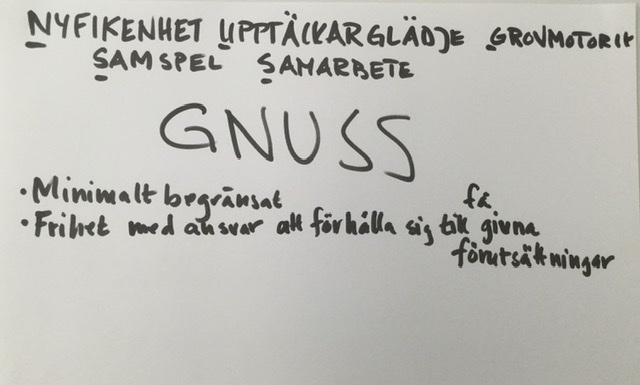 NYFIKENHET UPPTÄCKARGLÄDJE GROVMOTORIK
SAMSPEL SAMARBETE
GNUSS
• Minimalt begränsat
få
• Frihet med ansvar att förhålla sig till givna
förutsättningar